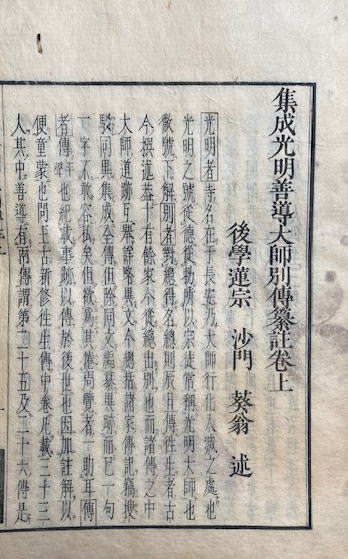 集成光明善導大師別傳纂註卷上
後學蓮宗 沙門 葵翁 述
光明者寺名在于長安乃大師行化入滅之處也
光明之號從德徒勅所以宗徒常稱光明大師也
徽號下解別者對總得名總則辰旦傳往生者古
今撰述蓋十有餘家今從總出別也而諸傳之中
大師道跡互舉詳略異文今總括諸家傳記撝
駁同異集成全傳但除同文編纂異跡而已一句
一字不敢容私矣但欲為其卷局覽者一助耳傳
者傳平也紀載事跡以傳於後世也因加註解以
便童蒙也問王古新修往生傳中卷凡載二十三
人其中善導有兩傳謂第二十五及二十六傳是